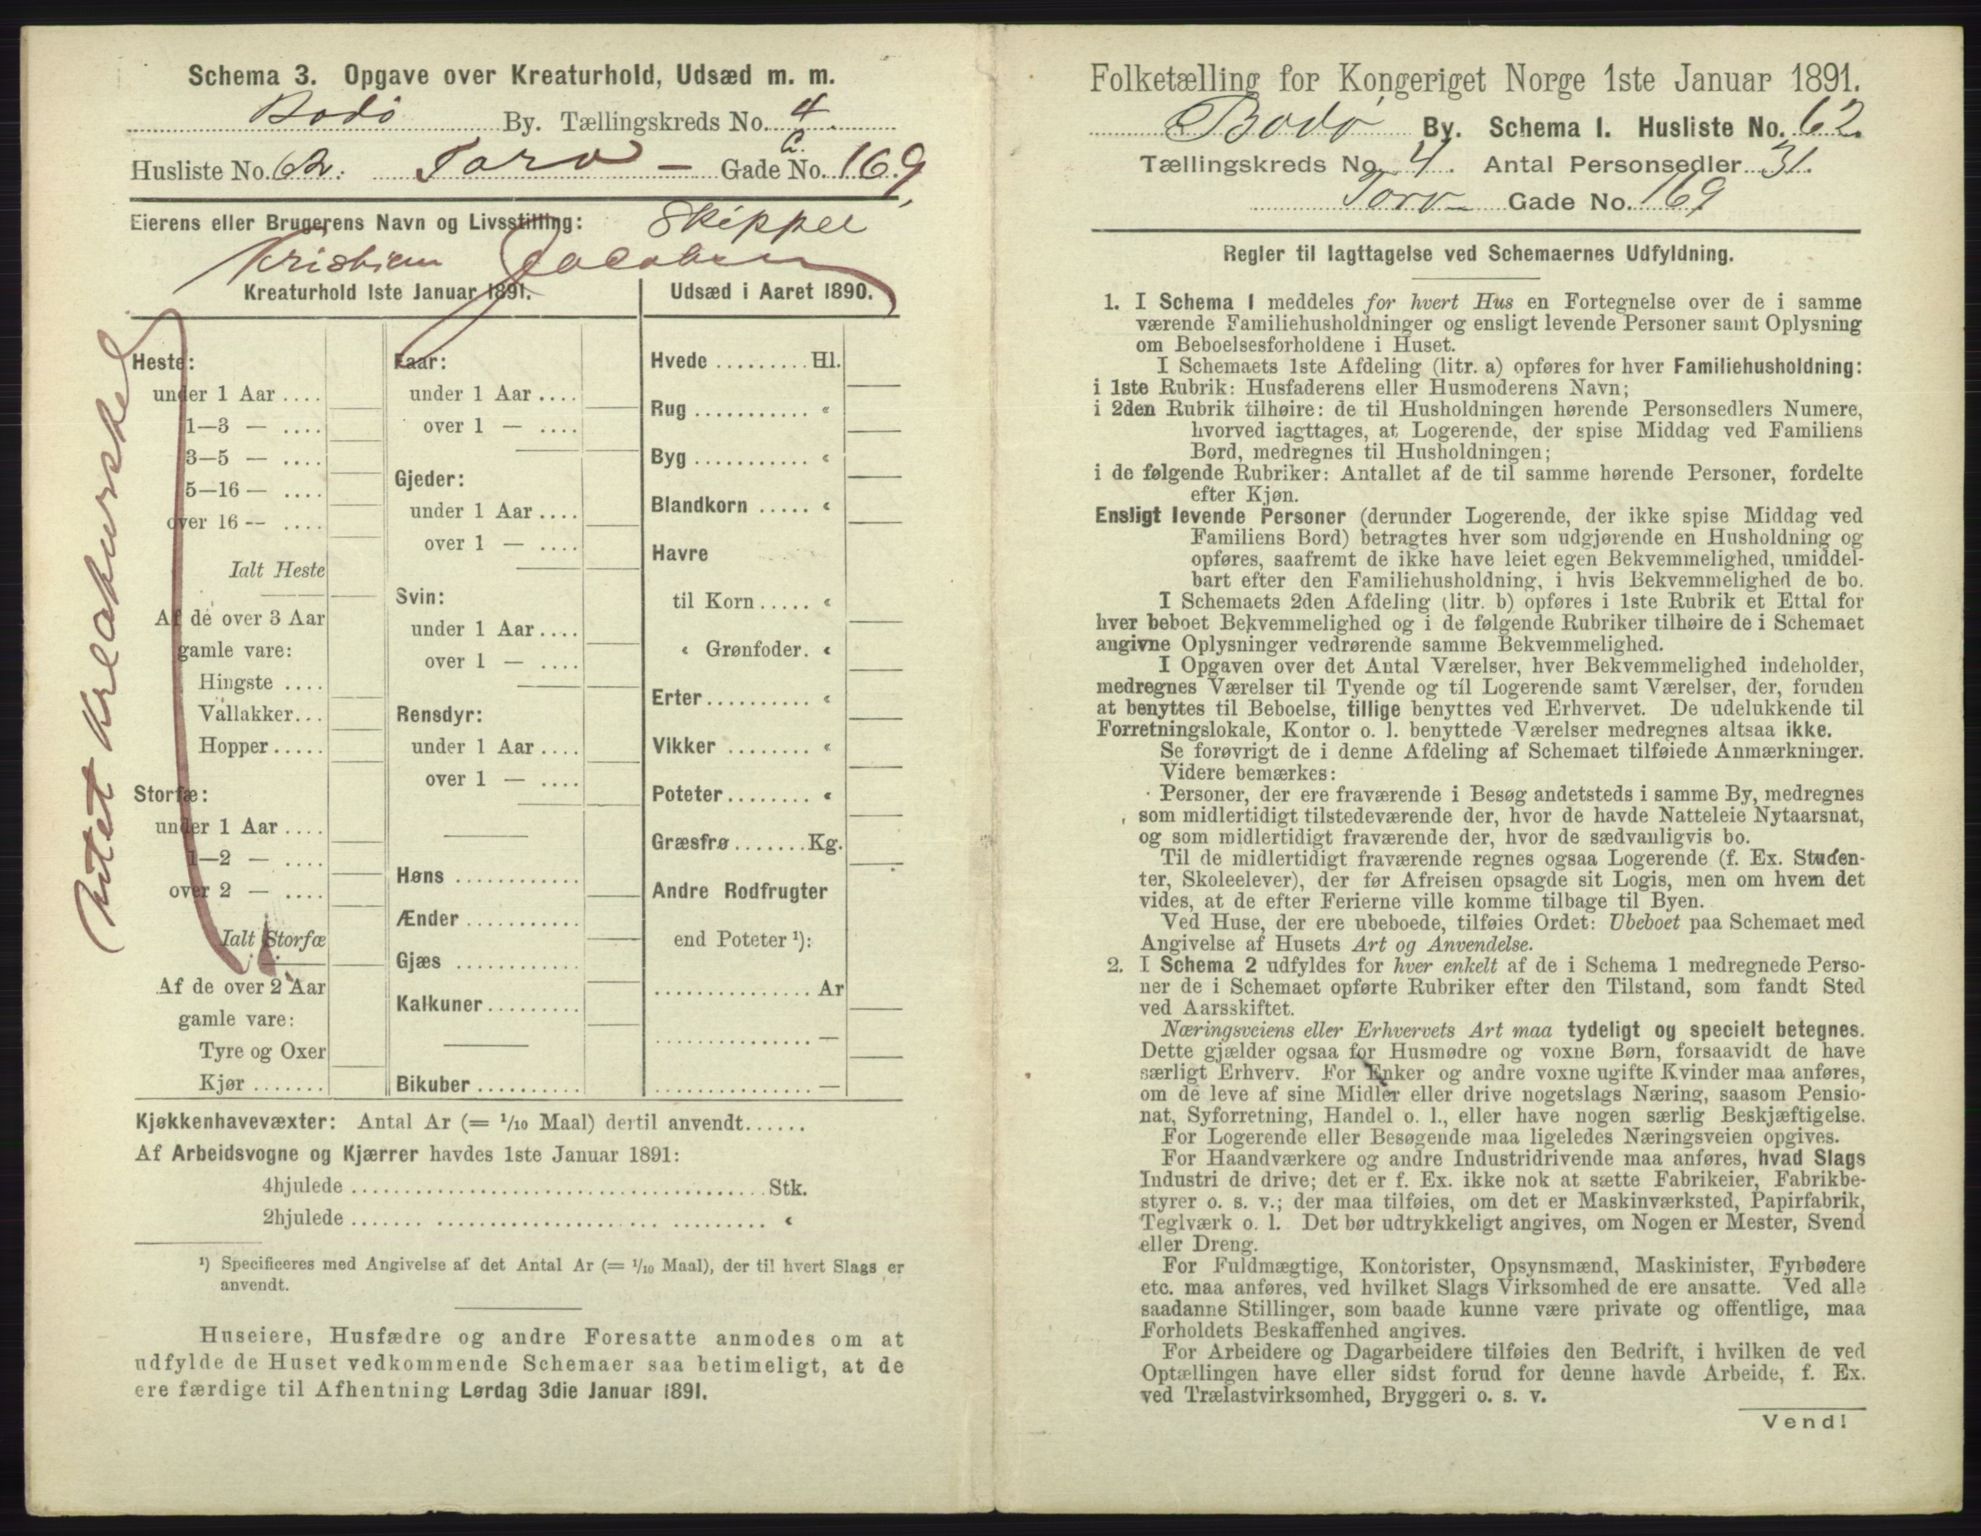 Schema 3. Opgave over Kreaturhold, Udsæd m. m.
Bodø By. Tællingskreds No. 4.
Husliste No. 62. Torv – Gade No. 169,
Eierens eller Brugerens Navn og Livsstilling: Skipper
Kristian Jacobsen
Kreaturhold 1ste Januar 1891.
Heste:
under 1 Aar ....
1—3 — ....
3—5 — ....
5—16 — ....
over 16 — ....
Ialt Heste
Af de over 3 Aar
gamle vare:
Hingste ....
Vallakker...
Hopper.....
Storfæ:
under 1 Aar ....
1—2 — ....
over 2 — ....
Ialt Storfæ
Af de over 2 Aar
gamle vare:
Tyre og Oxer
Kjør .......
Intet Kreaturhold
Faar:
under 1 Aar ....
over 1 — ....
Gjeder:
under 1 Aar ....
over 1 — ....
Svin:
under 1 Aar ....
over 1 — ....
Rensdyr:
under 1 Aar ....
over 1 — ....
Høns ............
Ænder ...........
Gjæs ............
Kalkuner.........
Bikuber..........
Udsæd i Aaret 1890.
Hvede ......... Hl.
Rug ........... "
Byg ........... "
Blandkorn ..... "
Havre
til Korn ..... "
" Grønfoder. "
Erter.......... "
Vikker ........ "
Poteter........ "
Græsfrø.......Kg.
Andre Rodfrugter
end Poteter ¹):
............... Ar
............... —
............... —
Kjøkkenhavevæxter: Antal Ar (= 1/10 Maal) dertil anvendt......
Af Arbeidsvogne og Kjærrer havdes 1ste Januar 1891:
4hjulede ....................................... Stk.
2hjulede ....................................... "
¹) Specificeres med Angivelse af det Antal Ar (= 1/10 Maal), der til hvert Slags er
anvendt.
Huseiere, Husfædre og andre Foresatte anmodes om at
udfylde de Huset vedkommende Schemaer saa betimeligt, at de
ere færdige til Afhentning Lørdag 3die Januar 1891.
Folketælling for Kongeriget Norge 1ste Januar 1891.
Bodø By. Schema I. Husliste No. 62.
Tællingskreds No. 4. Antal Personsedler 31.
Torv – Gade No. 169
Regler til Iagttagelse ved Schemaernes Udfyldning.
1. I Schema 1 meddeles for hvert Hus en Fortegnelse over de i samme
værende Familiehusholdninger og ensligt levende Personer samt Oplysning
om Beboelsesforholdene i Huset.
I Schemaets 1ste Afdeling (litr. a) opføres for hver Familiehusholdning:
i 1ste Rubrik: Husfaderens eller Husmoderens Navn;
i 2den Rubrik tilhøire: de til Husholdningen hørende Personsedlers Numere,
hvorved iagttages, at Logerende, der spise Middag ved Familiens
Bord, medregnes til Husholdningen;
i de følgende Rubriker: Antallet af de til samme hørende Personer, fordelte
efter Kjøn.
Ensligt levende Personer (derunder Logerende, der ikke spise Middag ved
Familiens Bord) betragtes hver som udgjørende en Husholdning og
opføres, saafremt de ikke have leiet egen Bekvemmelighed, umiddel-
bart efter den Familiehusholdning, i hvis Bekvemmelighed de bo.
I Schemaets 2den Afdeling (litr. b) opføres i 1ste Rubrik et Ettal for
hver beboet Bekvemmelighed og i de følgende Rubriker tilhøire de i Schemaet
angivne Oplysninger vedrørende samme Bekvemmelighed.
I Opgaven over det Antal Værelser, hver Bekvemmelighed indeholder,
medregnes Værelser til Tyende og til Logerende samt Værelser, der, foruden
at benyttes til Beboelse, tillige benyttes ved Erhvervet. De udelukkende til
Forretningslokale, Kontor o. l. benyttede Værelser medregnes altsaa ikke.
Se forøvrigt de i denne Afdeling af Schemaet tilføiede Anmærkninger.
Videre bemærkes:
Personer, der ere fraværende i Besøg andetsteds i samme By, medregnes
som midlertidigt tilstedeværende der, hvor de havde Natteleie Nytaarsnat,
og som midlertidigt fraværende der, hvor de sædvanligvis bo.
Til de midlertidigt fraværende regnes ogsaa Logerende (f. Ex. Studen-
ter, Skoleelever), der før Afreisen opsagde sit Logis, men om hvem det
vides, at de efter Ferierne ville komme tilbage til Byen.
Ved Huse, der ere ubeboede, tilføies Ordet: Ubeboet paa Schemaet med
Angivelse af Husets Art og Anvendelse.
2. I Schema 2 udfyldes for hver enkelt af de i Schema 1 medregnede Perso-
ner de i Schemaet opførte Rubriker efter den Tilstand, som fandt Sted
ved Aarsskiftet.
Næringsveiens eller Erhvervets Art maa tydeligt og specielt betegnes.
Dette gjælder ogsaa for Husmødre og voxne Børn, forsaavidt de have
særligt Erhverv. For Enker og andre voxne ugifte Kvinder maa anføres,
om de leve af sine Midler eller drive nogetslags Næring, saasom Pensio-
nat, Syforretning, Handel o. l., eller have nogen særlig Beskjæftigelse.
For Logerende eller Besøgende maa ligeledes Næringsveien opgives.
For Haandværkere og andre Industridrivende maa anføres, hvad Slags
Industri de drive; det er f. Ex. ikke nok at sætte Fabrikeier, Fabrikbe-
styrer o. s. v.; der maa tilføies, om det er Maskinværksted, Papirfabrik,
Teglværk o. l. Det bør udtrykkeligt angives, om Nogen er Mester, Svend
eller Dreng.
For Fuldmægtige, Kontorister, Opsynsmænd, Maskinister, Fyrbødere
etc. maa anføres, ved hvilket Slags Virksomhed de ere ansatte. Ved alle
saadanne Stillinger, som baade kunne være private og offentlige, maa
Forholdets Beskaffenhed angives.
For Arbeidere og Dagarbeidere tilføies den Bedrift, i hvilken de ved
Optællingen have eller sidst forud for denne havde Arbeide, f. Ex.
ved Trælastvirksomhed, Bryggeri o. s. v.
Vend!